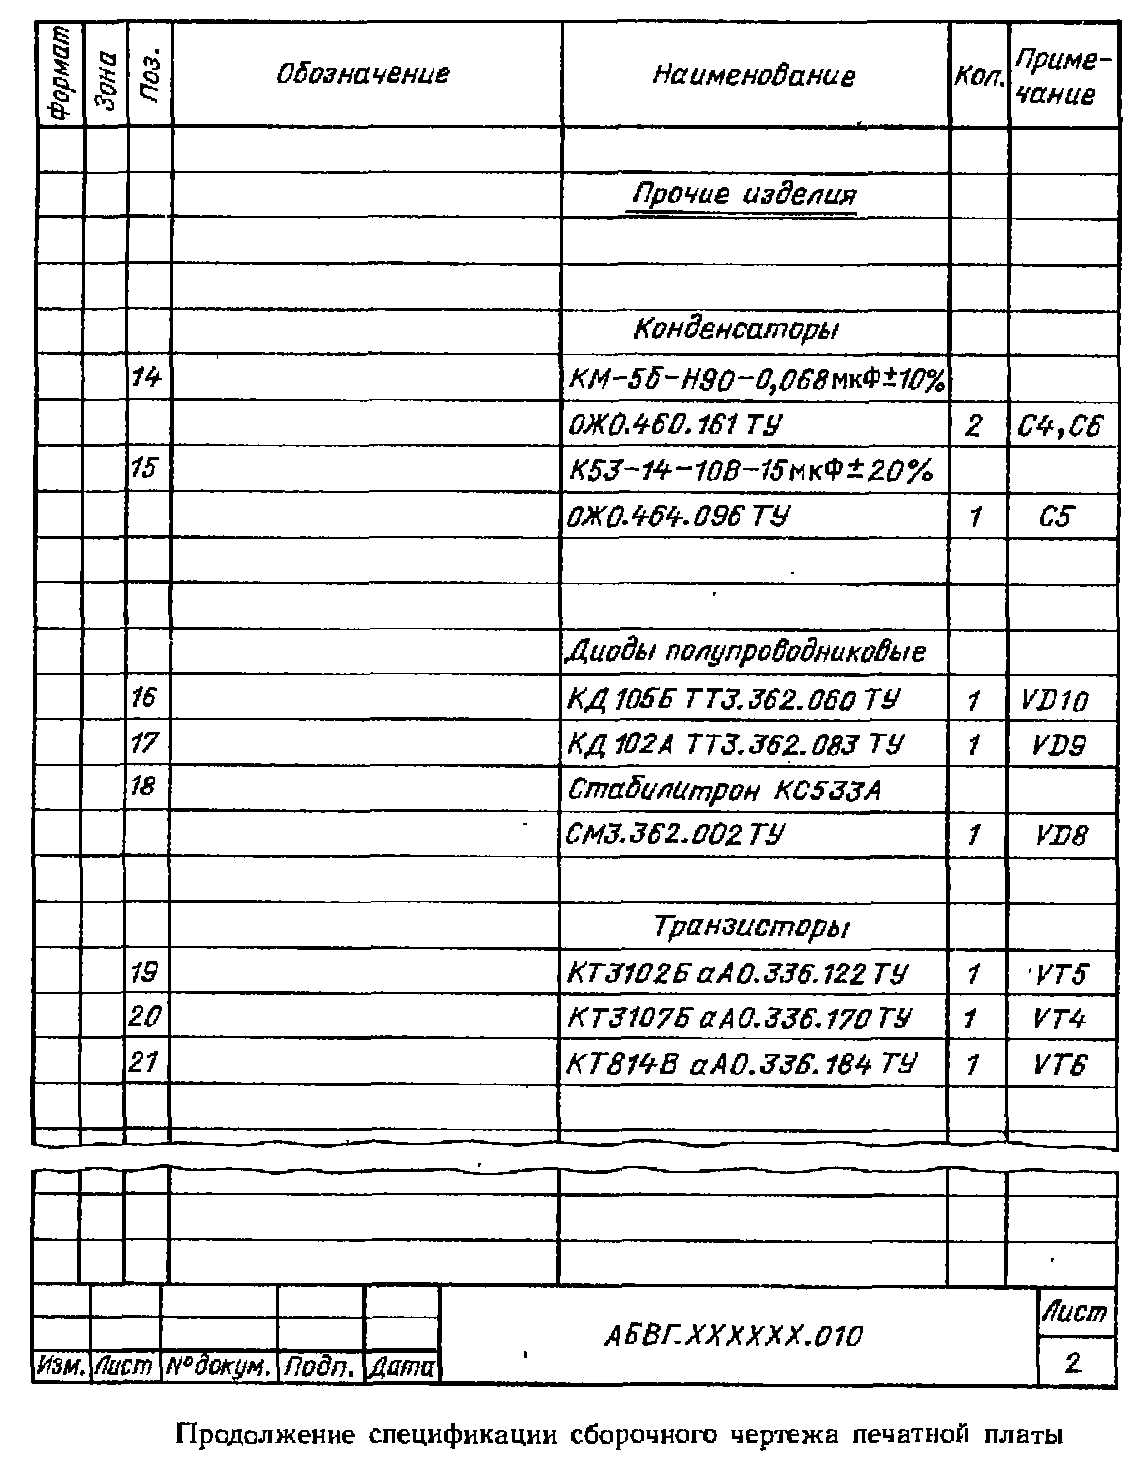 Формат Зона Поз. Обозначение Наименование Кол. Приме-
чание
Прочие изделия
Конденсаторы
14 КМ-5б-Н90-0,068мкФ±10%
ОЖ0.460.161 ТУ 2 С4,С6
15 К53-14-10В-15мкФ±20%
ОЖ0.464.096 ТУ 1 С5
Диоды полупроводниковые
16 КД105Б ТТ3.362.060 ТУ 1 VD10
17 КД102А ТТ3.362.083 ТУ 1 VD9
18 Стабилитрон КС533А
СМ3.362.002 ТУ 1 VD8
Транзисторы
19 КТ3102Б аА0.336.122 ТУ 1 VT5
20 КТ3107Б аА0.336.170 ТУ 1 VT4
21 КТ814В аА0.336.184 ТУ 1 VT6
АБВГ.ХХХХХХ.010
Лист
2
Изм. Лист №докум. Подп. Дата
Продолжение спецификации сборочного чертежа печатной платы